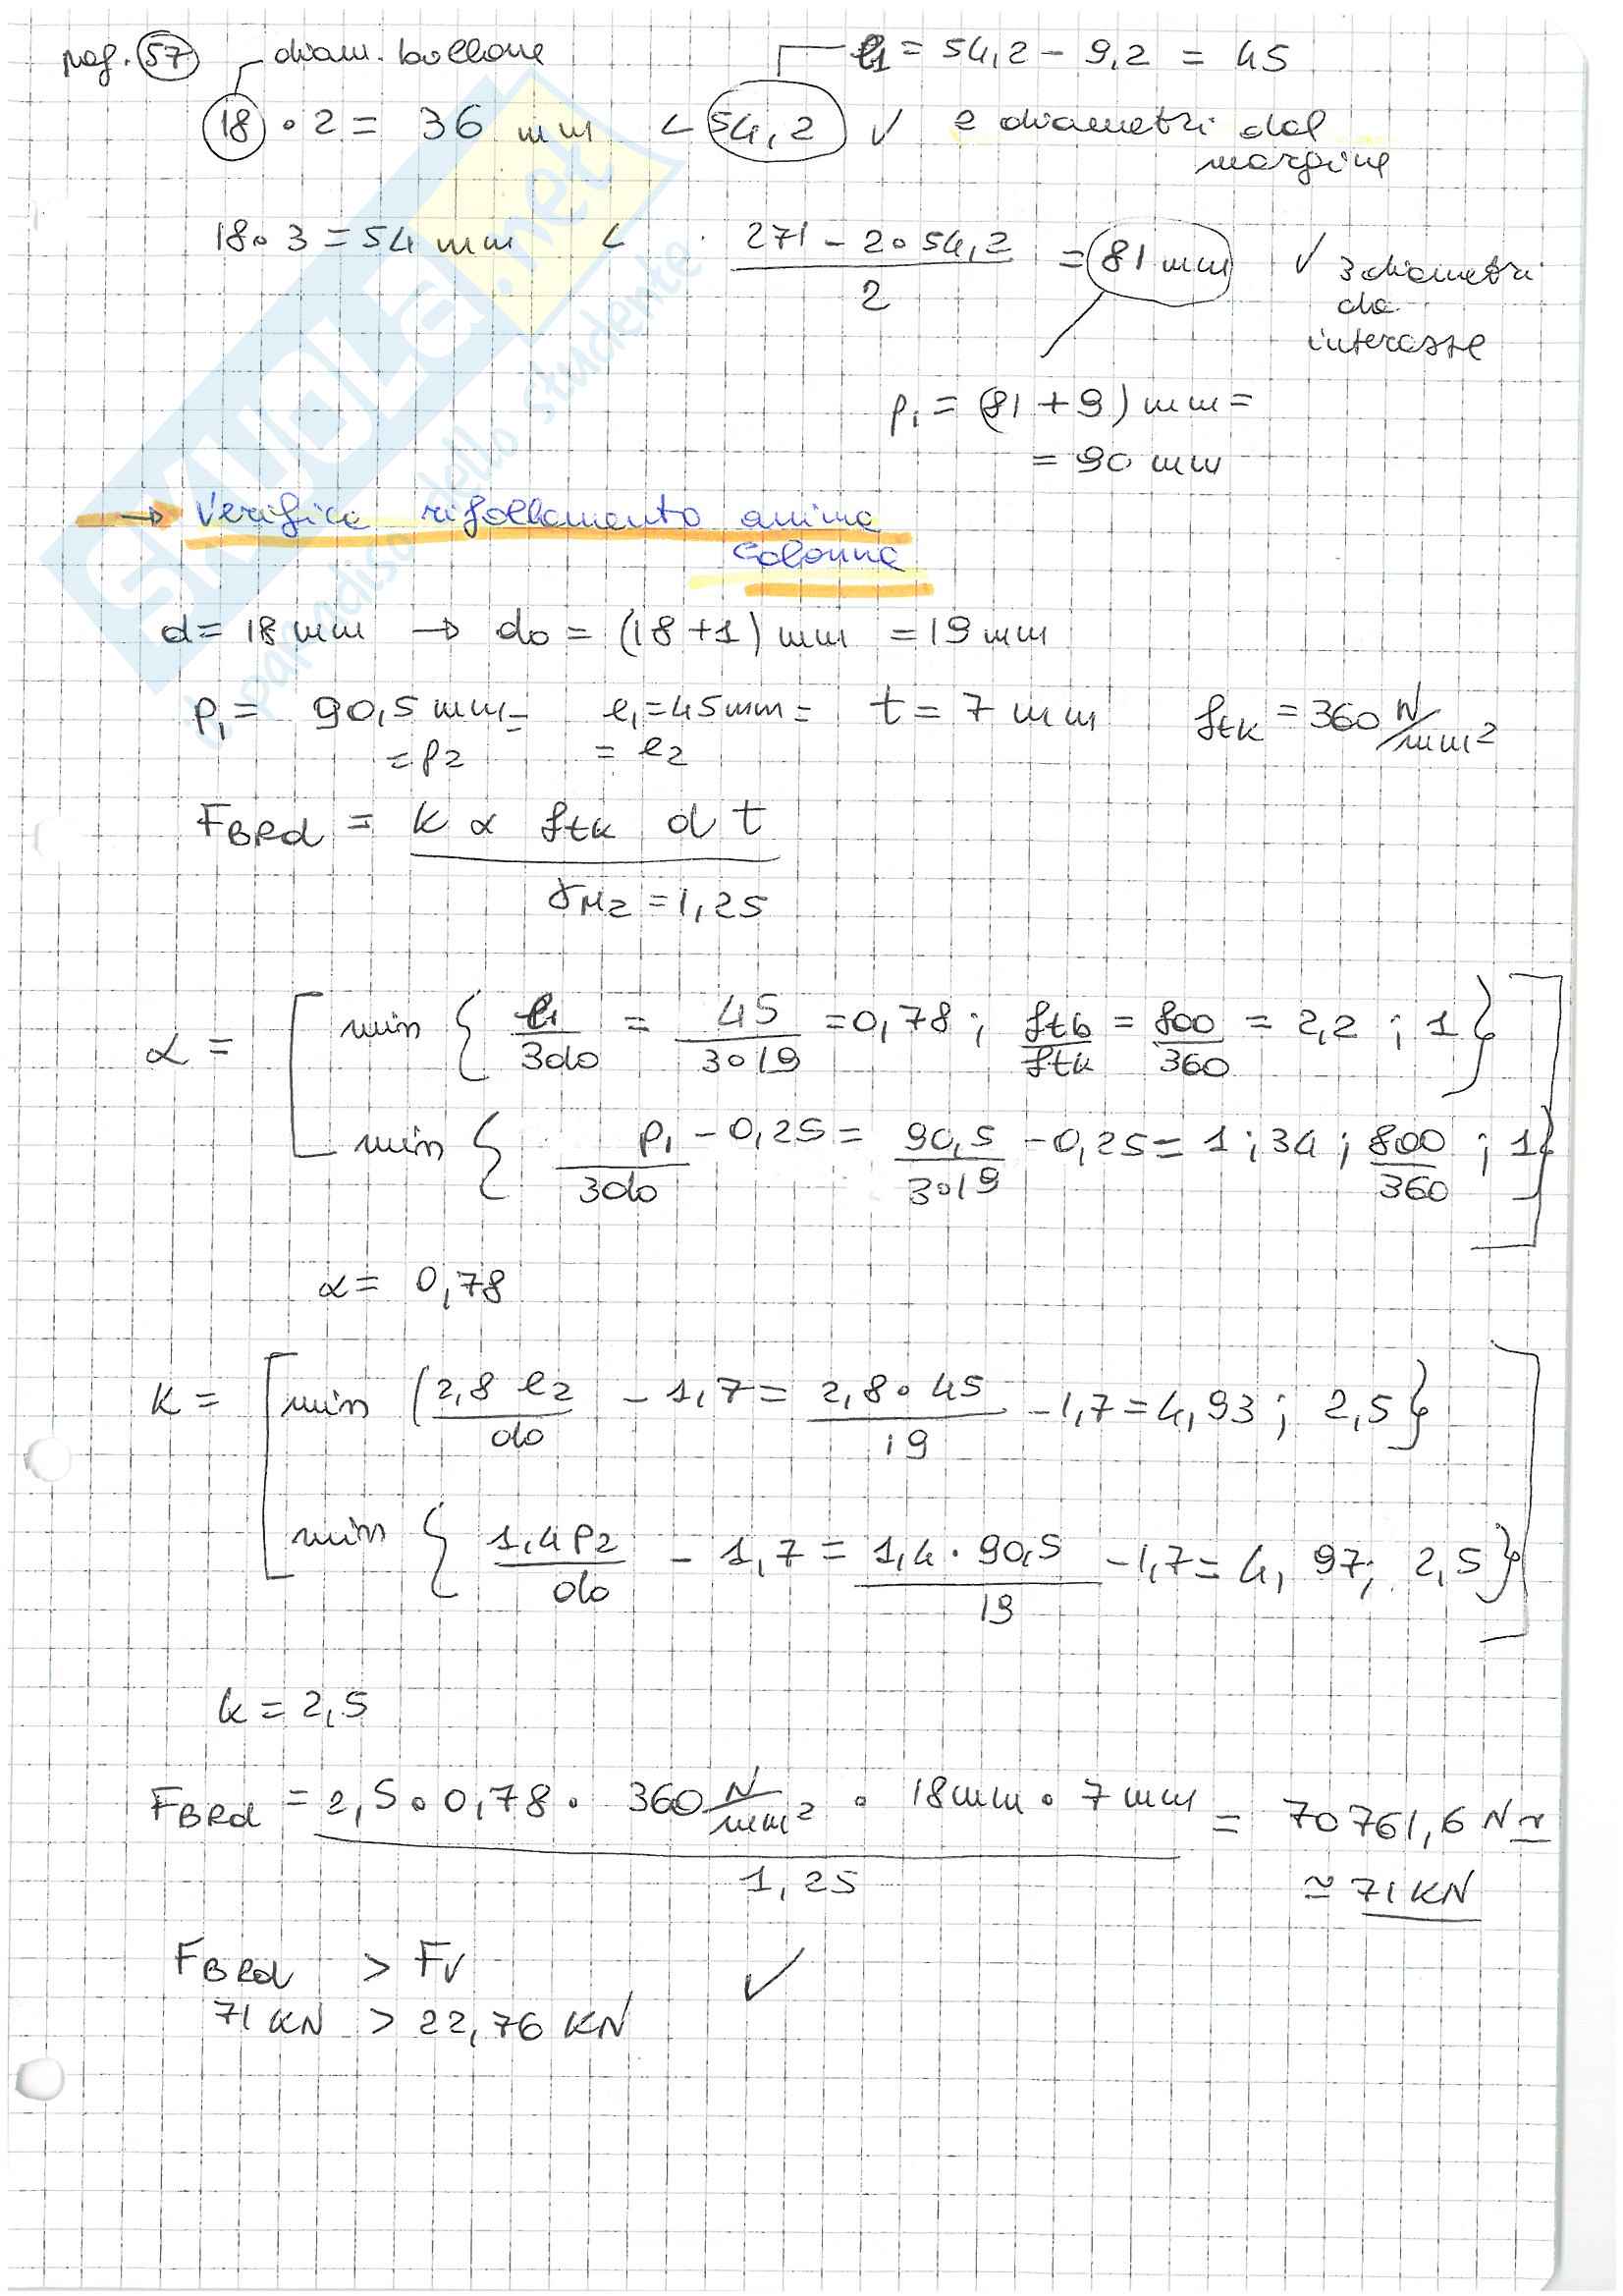 pag. 57 diam. bullone e1 = 54,2 - 9,2 = 45
18 · 2 = 36 mm < 54,2 ✓ 2 diametri dal
margine
18·3 = 54 mm < 271 - 2·54,2 / 2 = 81 mm ✓ 3 diametri
da
interasse
p1 = (81 + 9) mm =
= 90 mm
→ Verifica rifollamento anima
colonna
d = 18 mm → d0 = (18+1) mm = 19 mm
p1 = 90,5 mm = e1 = 45 mm = t = 7 mm ftk = 360 N/mm2
= p2 = e2
FBRd = k α ftk d t
γM2 = 1,25
α = [ min { e1/3d0 = 45/3·19 = 0,78 ; ftb/ftk = 800/360 = 2,2 ; 1 }
min { p1/3d0 - 0,25 = 90,5/3·19 - 0,25 = 1;34 ; 800/360 ; 1 } ]
α = 0,78
k = [ min ( 2,8 e2/d0 - 1,7 = 2,8·45/19 - 1,7 = 4,93 ; 2,5 }
min { 1,4 p2/d0 - 1,7 = 1,4·90,5/19 - 1,7 = 4,97; 2,5 } ]
k = 2,5
FBRd = 2,5·0,78· 360 N/mm2 · 18 mm · 7 mm / 1,25 = 70761,6 N ≃
≃ 71 KN
FBRd > FV ✓
71 KN > 22,76 KN
SKUOLA.net
il paradiso dello studente